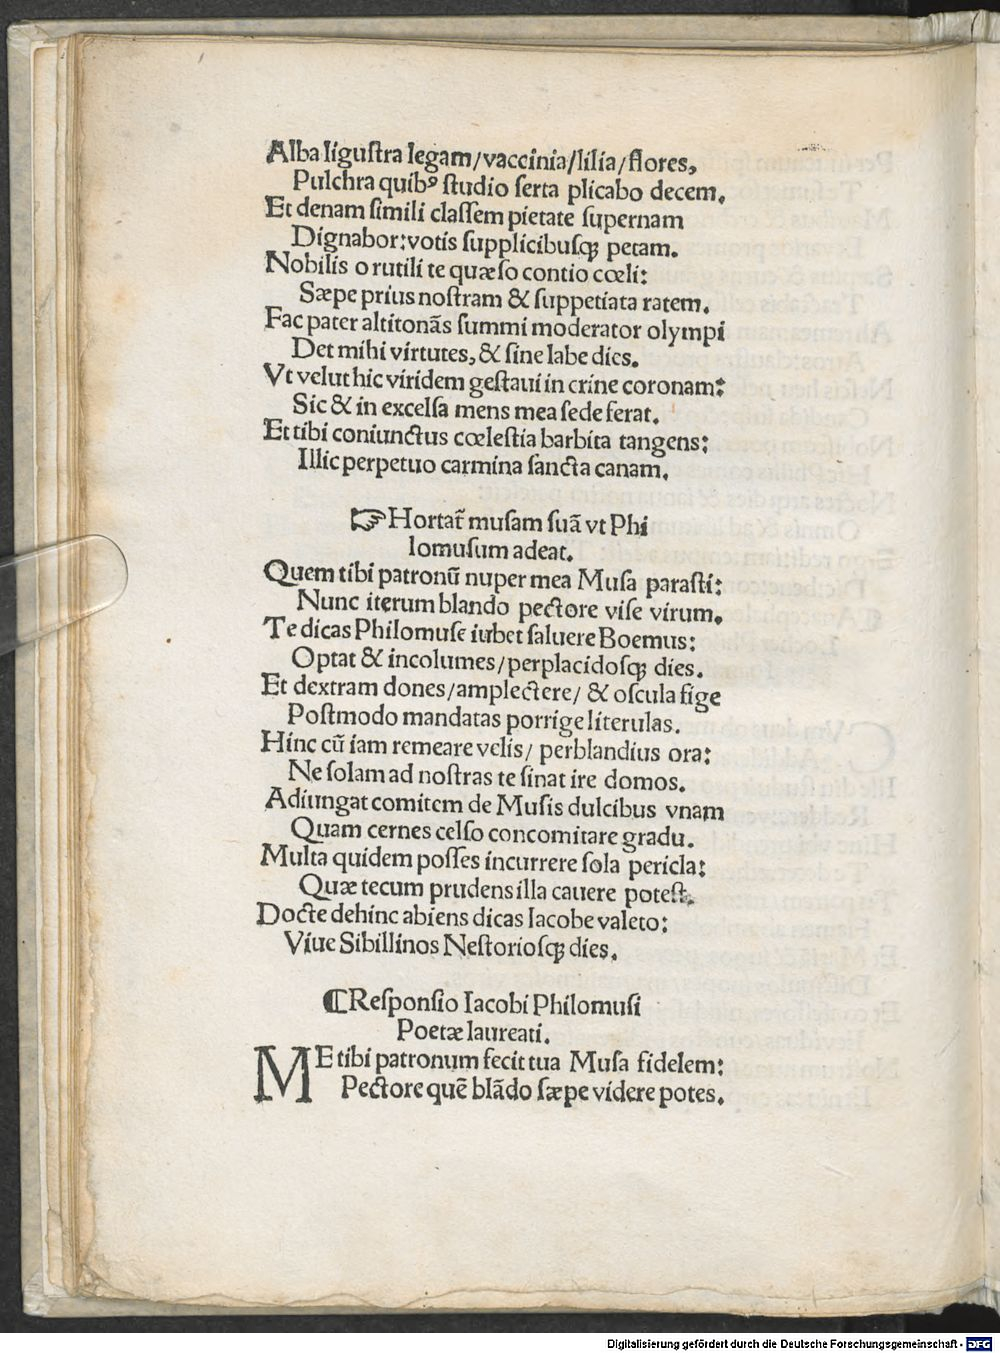 Alba liguſtra legam/vaccinia/lilia/flores,
Pulchra quibꝰ ſtudio ſerta plicabo decem.
Et denam ſimili claſſem pietate ſupernam
Dignabor: votis ſupplicibuſqꝫ petam.
Nobilis o rutili te quæſo contio cœli:
Sæpe prius noſtram & ſuppetiata ratem.
Fac pater altitonãs ſummi moderator olympi
Det mihi virtutes, & ſine labe dies.
Vt velut hic viridem geſtaui in crine coronam:
Sic & in excelſa mens mea ſede ferat.
Et tibi coniunctus cœleſtia barbita tangens:
Illic perpetuo carmina ſancta canam.
☞Hortat᷑ muſam ſuã vt Phi
lomuſum adeat.
Quem tibi patronũ nuper mea Muſa paraſti:
Nunc iterum blando pectore viſe virum.
Te dicas Philomuſe iubet ſaluere Boemus:
Optat & incolumes/perplacidoſqꝫ dies.
Et dextram dones/amplectere/ & oſcula fige
Poſtmodo mandatas porrige literulas.
Hinc cũ iam remeare velis/ perblandius ora:
Ne ſolam ad noſtras te ſinat ire domos.
Adiungat comitem de Muſis dulcibus vnam
Quam cernes celſo concomitare gradu.
Multa quidem poſſes incurrere ſola pericla:
Quæ tecum prudens illa cauere poteſt.
Docte dehinc abiens dicas Iacobe valeto:
Viue Sibillinos Neſtorioſqꝫ dies.
⸿Reſponſio Iacobi Philomuſi
Poetæ laureati.
ME tibi patronum fecit tua Muſa fidelem:
Pectore quẽ blãdo ſæpe videre potes.
Digitalisierung gefördert durch die Deutsche Forschungsgemeinschaft - DFG